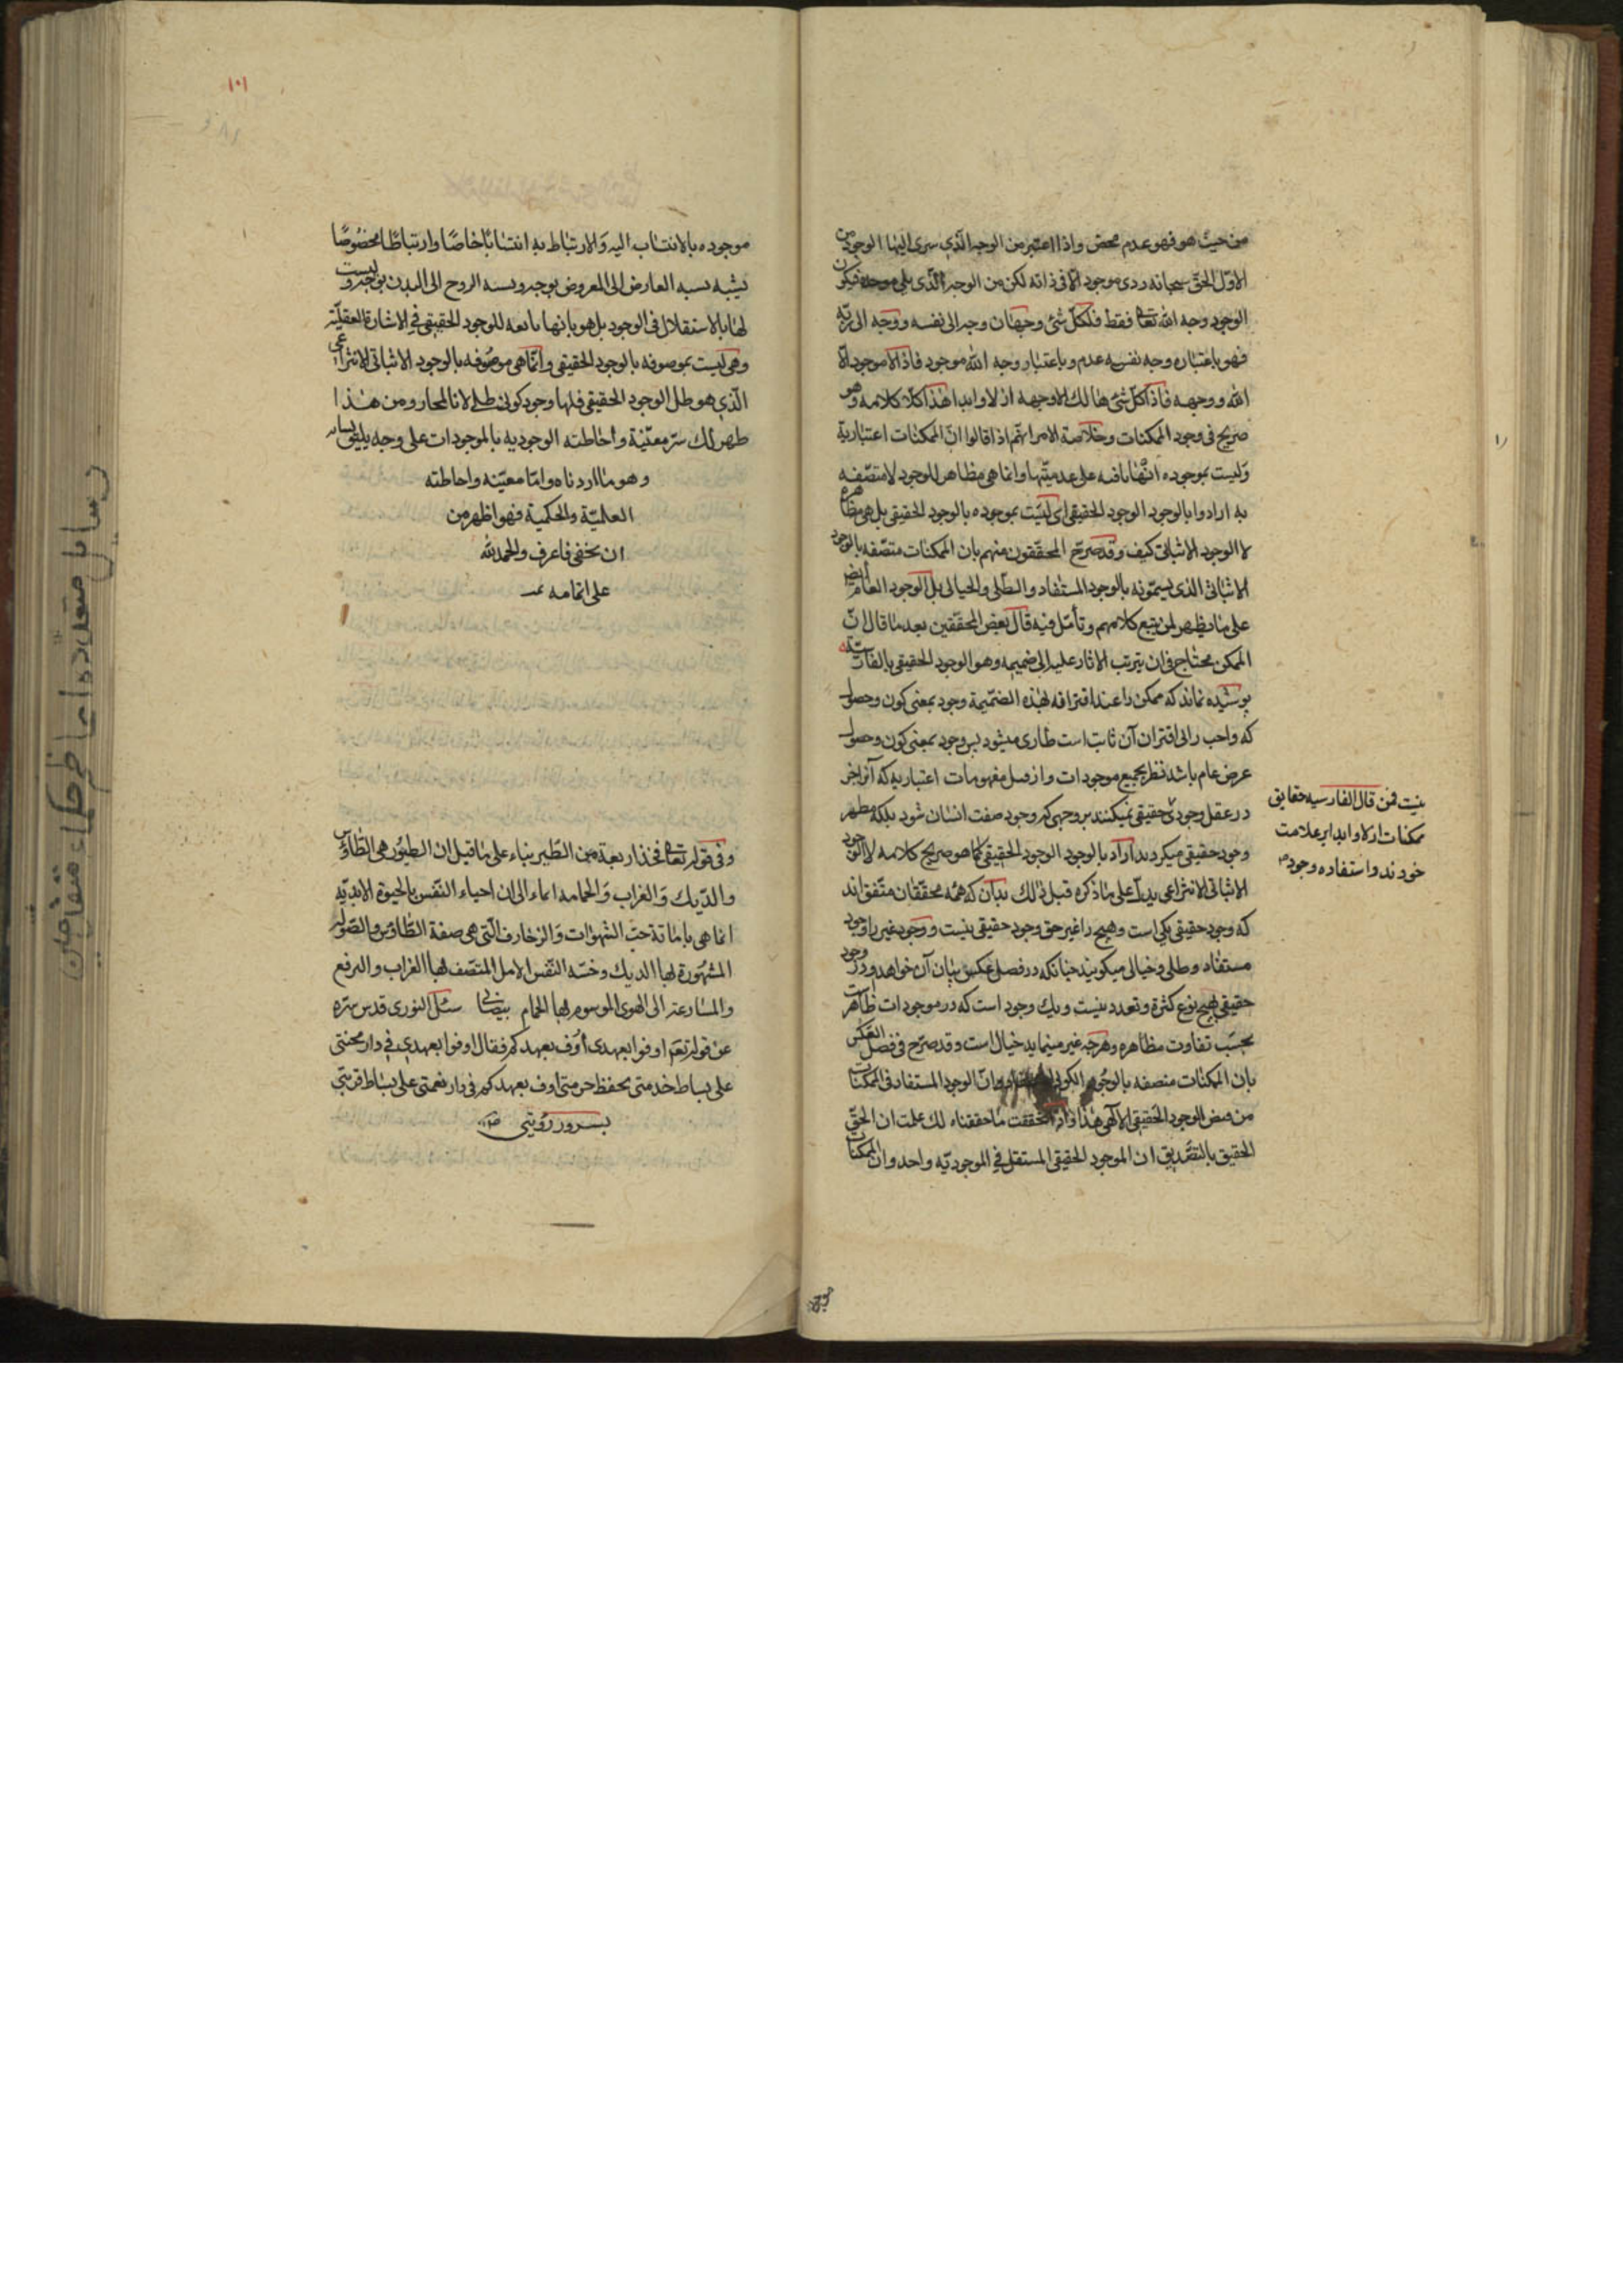 من حيث هو فهو عدم محض واذا اعتبر من الوجه الذي سرى اليها الوجود من
الاول الحق سبحانه ردى موجود الا فى ذاته لكن من الوجه الذى يلى موجده فيكون
الوجود وجه الله تعالى فقط فلكل شئ وجهان وجه الى نفسه ووجه الى ربه
فهو باعتبار وجه نفسه عدم وباعتبار وجه الله موجود فاذا لا موجود الا
الله ووجهه فاذا كل شئ هالك الا وجهه ازلا وابدا هذا كلا كلامه وهو
صريح فى وجود الممكنات وخلاصة الامر انهم اذا قالوا ان الممكنات اعتبارية
وليست بموجوده انها باقيه على عدميتها وانما هى مظاهر للوجود لا متصفه
به ارادوا بالوجود الوجود الحقيقى اى ليست بموجوده بالوجود الحقيقى بل هى مظاهره
لا الوجود الاثباتى كيف وقد صرح المحققون منهم بان الممكنات متصفه بالوجود
الاثباتى الذى يسمونه بالوجود المستفاد والظلى والخيالى بل الوجود العام ايضا
على ما يظهر لمن يتبع كلامهم وتأمل فيه قال بعض المحققين بعد ما قال ان
الممكن محتاج فى ان يترتب الاثار عليه الى ضميمه وهو الوجود الحقيقى بالفارسيه
پوشيده نماند كه ممكن را عند اقترانه لهذه الضميمة وجود بمعنى كون وحصول
كه واجب را لى اقتران آن ثابت است طارى ميشود پس وجود بمعنى كون وحصول
عرض عام باشد نظر بجميع موجودات واز قبل مفهومات اعتباريه كه آنرا جز
در عقل وجودى حقيقى نميكنند بر وجهى كه وجود صفت انسان شود بلكه مظهر
وجود حقيقى ميكردند اراد بالوجود الوجود الحقيقى كما هو صريح كلامه لا الوجود
الاثباتى الانتزاعى يدل على ما ذكره قبل ذلك بدان كه همه محققان متفق اند
كه وجود حقيقى يكى است وهيچ را غير حق وجود حقيقى نيست ووجود غير را وجود
مستفاد وظلى وخيالى ميكويند چنانكه در فصل عكس بيان آن خواهد ودر وجود
حقيقى بهيچ نوع كثرة وتعدد نيست ويك وجود است كه در موجودات ظاهر است
بحسب تفاوت مظاهره وهرچه غير مينمايد خيال است وقد صرح فى فصل العكس
بان الممكنات متصفه بالوجود الكونى وان الوجود المستفاد فى الممكنات
من فيض الوجود الحقيقى الالهى هذا واذا تحققت ما حققناه لك علمت ان الحق
الحقيق بالتصديق ان الموجود الحقيقى المستقل فى الموجوديه واحد وان الممكنات
نيست فمن قال الفارسيه حقايق
ممكنات ازلا وابدا بر علامت
خودند واستفاده وجود
١٠١
موجوده بالانتساب اليه والارتباط به انتسابا خاصا وارتباطا مخصوصا
يشبه نسبه العارض الى المعروض بوجه ونسبه الروح الى البدن بوجه وليست
لها بالاستقلال فى الوجود بل هو بانها تابعه للوجود الحقيقى فى الاشارة العقليه
وهى ليست بموصوفه بالوجود الحقيقى وانما هى موصوفه بالوجود الاثباتى الانتزاعى
الذى هو ظل الوجود الحقيقى فلها وجود كونى ظلى لانا المجاز ومن هذا
ظهر لك سر معيته واحاطته الوجوديه بالموجودات على وجه يليق بشانه
وهو ما اردناه واما معيته واحاطته
العلميه والحكمية فهو اظهر من
ان يخفى فاعرف والحمد لله
على اتمامه تمت
وفى قوله تعالى فخذ اربعة من الطير بناء على ما قيل ان الطيور هى الطاوس
والديك والغراب والحمامه ايماء الى ان احياء النفس بالحيوة الابديه
انما هى باماتة حب الشهوات والزخارف التى هى صفة الطاوس والصوله
المشهورة لها الديك وخسه النفس الامل المتصف لها الغراب والترفع
والمسارعة الى الهوى الموسوم لها الحمام بيضاوى سئل النورى قدس سره
عن قوله تعم اوفوا بعهدى اوف بعهدكم فقال اوفوا بعهدى فى دار محنتى
على بساط خدمتى بحفظ حرمتى اوف بعهدكم فى دار نعمتى على بساط قربتى
بسرور رؤيتى
رسايل متعدده اعاظم حكماء متفاخرين